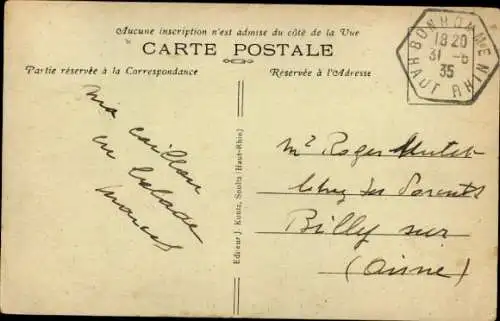 Aucune inscription n'est admise du côté de la Vue
CARTE POSTALE
Partie réservée à la Correspondance
Réservée à l'Adresse
BONHOMME
18 20
31 -6
35
HAUT RHIN
en balade
Marcel
Editeur J. Kuntz, Soultz (Haut-Rhin)
Mr Roger
Chez ses Parents
Billy sur
(Aisne)